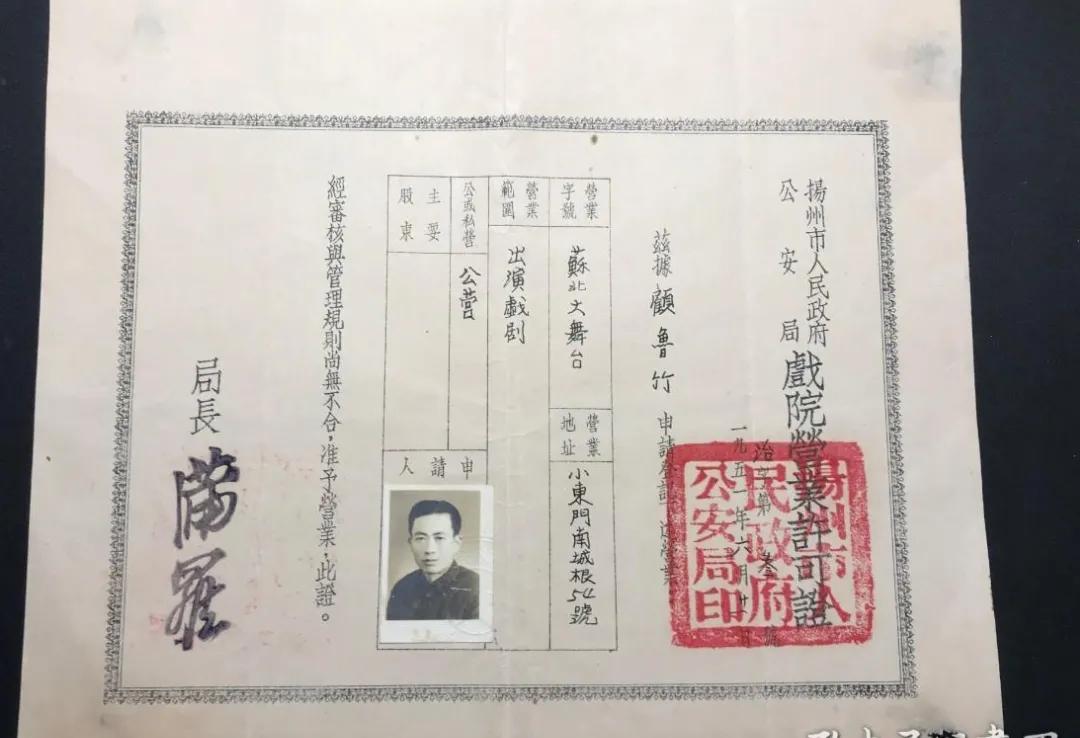 揚州市人民政府
公安局
戲院營業許可證
治字第叁號
一九五一年六月廿一日
茲據顧魯竹申請登記
營業
營業字號
蘇北大舞台
營業地址
小東門南城根54號
營業範圍
出演戲剧
公或私營
公营
主要股東
申請人
經審核與管理規則尚無不合，准予營業，此證。
局長
揚州市人民政府公安局印